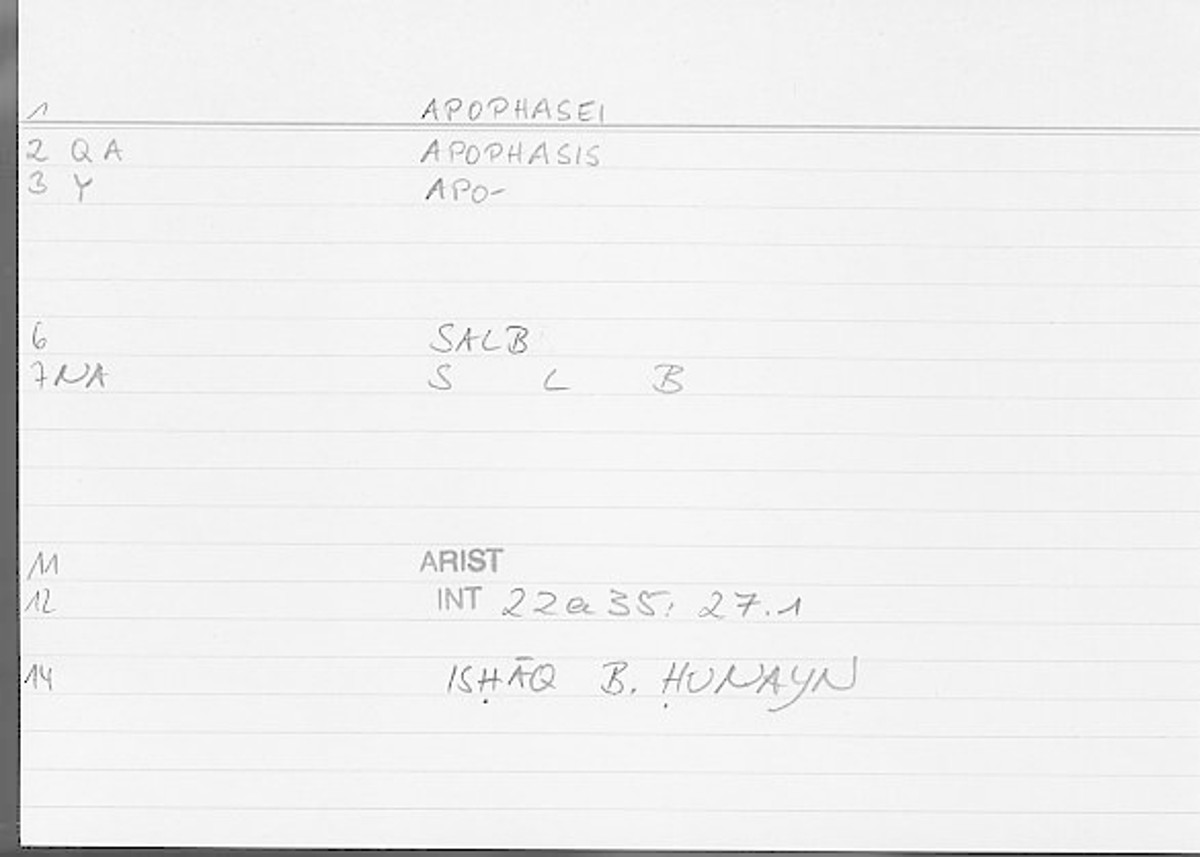 1 APOPHASEI
2 QA APOPHASIS
3 Y APO-
6 SALB
7 NA S L B
11 ARIST
12 INT 22a35; 27.1
14 ISḤĀQ B. ḤUNAYN